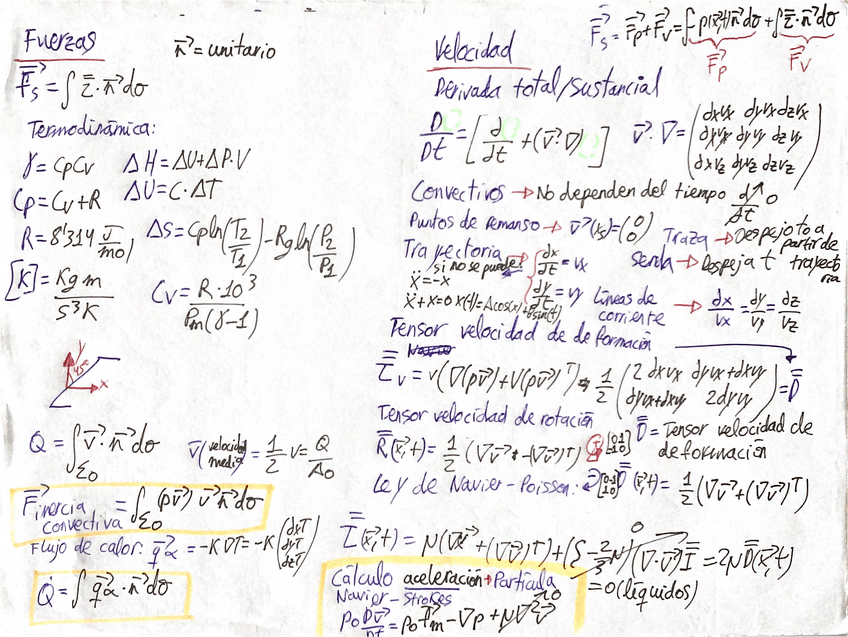 Fuerzas
n⃗ = unitario
F⃗s = ∫ τ̿ · n⃗ dσ
Termodinámica:
γ = CpCv ΔH = ΔU+ΔP·V
Cp = Cv + R ΔU = C·ΔT
R = 8'314 J/mol ΔS = Cp ln(T2/T1) - Rg ln(P2/P1)
[K] = Kg m / s³K Cv = R·10³ / Pm(γ-1)
y
45°
x
Q = ∫Σ0 v⃗ · n⃗ dσ v̄ (velocidad media) = 1/2 v = Q/A0
F⃗ inercia convectiva = ∫Σ0 (ρv⃗) v⃗ n⃗ dσ
Flujo de calor: q⃗α = -K∇T = -K (dxT dyT dzT)
Q̇ = ∫ q⃗α · n⃗ dσ
F⃗s = F⃗p + F⃗v = ∫-p(x⃗,t) n⃗ dσ + ∫ τ̿ · n⃗ dσ
F⃗p F⃗v
Velocidad
Derivada total/sustancial
D/Dt = [∂/∂t + (v⃗·∇)] v⃗·∇ = (dxvx dyvx dzvx
dxvy dyvy dzvy
dxvz dyvz dzvz)
Convectivos → No dependen del tiempo d/dt ↗ 0
Puntos de remanso → v⃗(xs) = (0 0)
Traza → Despejo to a partir de trayectoria
Senda → Despeja t
Trayectoria → dx/dt = vx
dy/dt = vy
si no se puede:
ẍ = -x
ẍ + x = 0 x(t) = Acos(x) + Bsin(t)
Líneas de corriente → dx/vx = dy/vy = dz/vz
Tensor velocidad de deformación
τ̿v = v(∇(ρv⃗) + ∇(ρv⃗)T) = 1/2 (2dxvx dyvx+dxvy
dyvx+dxvy 2dyvy) = D̿
Tensor velocidad de rotación
R̿(x⃗,t) = 1/2 (∇v⃗ - (∇v⃗)T)
D̿ = Tensor velocidad de deformación
Ley de Navier-Poisson: D̿(x⃗,t) = 1/2 (∇v⃗ + (∇v⃗)T)
τ̿(x⃗,t) = μ(∇v⃗ + (∇v⃗)T) + (ζ - 2/3 μ)(∇·v⃗) I̿ = 2μD̿(x⃗,t)
0
= 0 (líquidos)
Cálculo aceleración → Partícula
Navier-Strokes
ρ0 Dv⃗/Dt = ρ0 f⃗m - ∇p + μ∇²v⃗